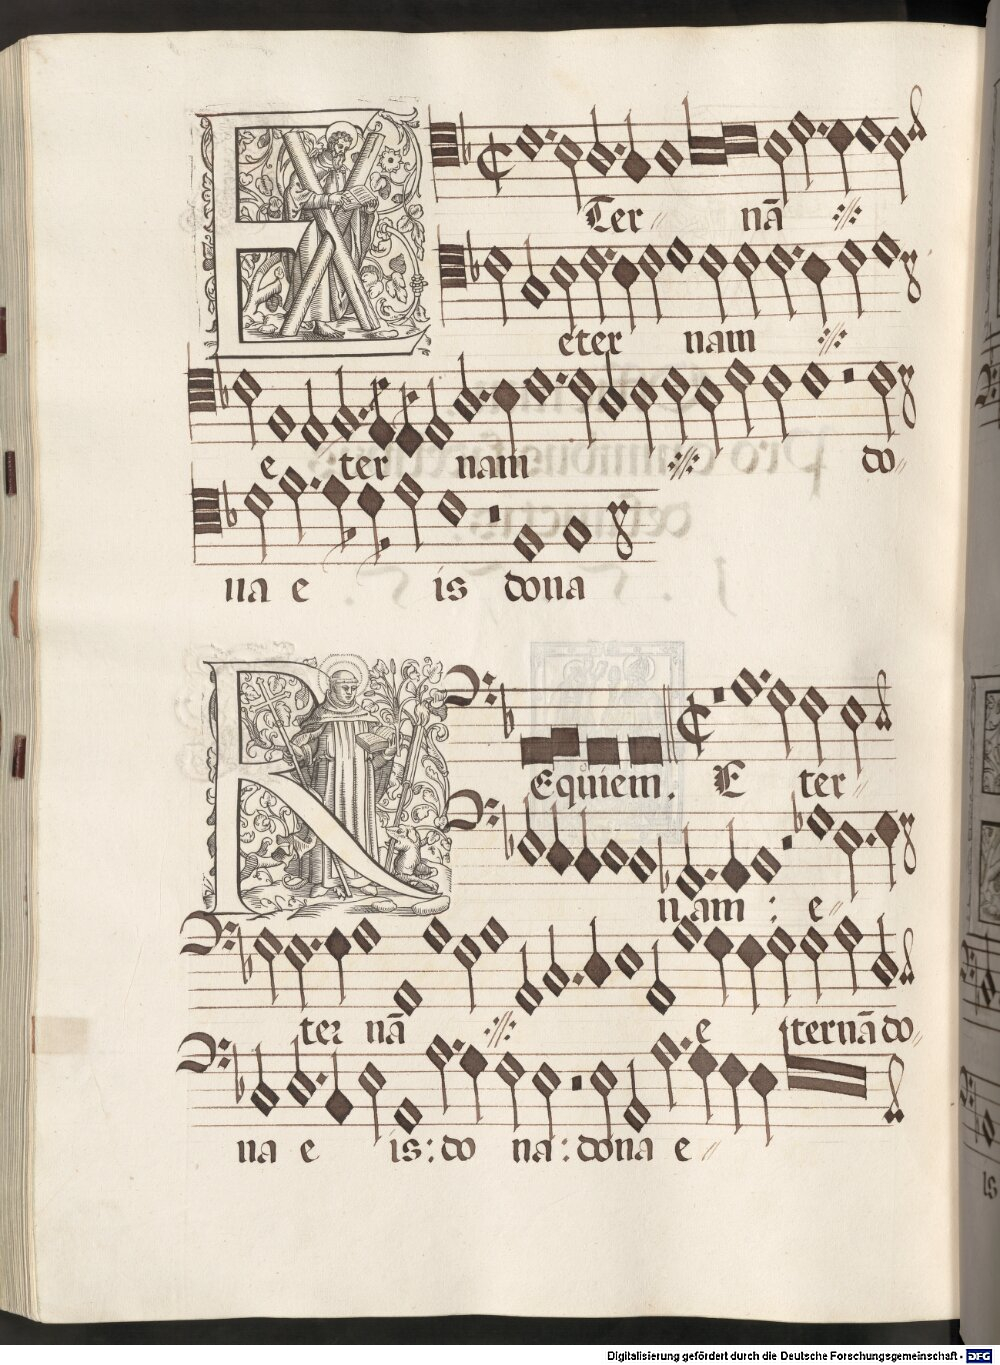 ETer nā
eter nam
e ter nam do
na e is dona
REquiem. E ter
nam : e
ter nā e ternā do
na e is : do na : dona e
Digitalisierung gefördert durch die Deutsche Forschungsgemeinschaft - DFG